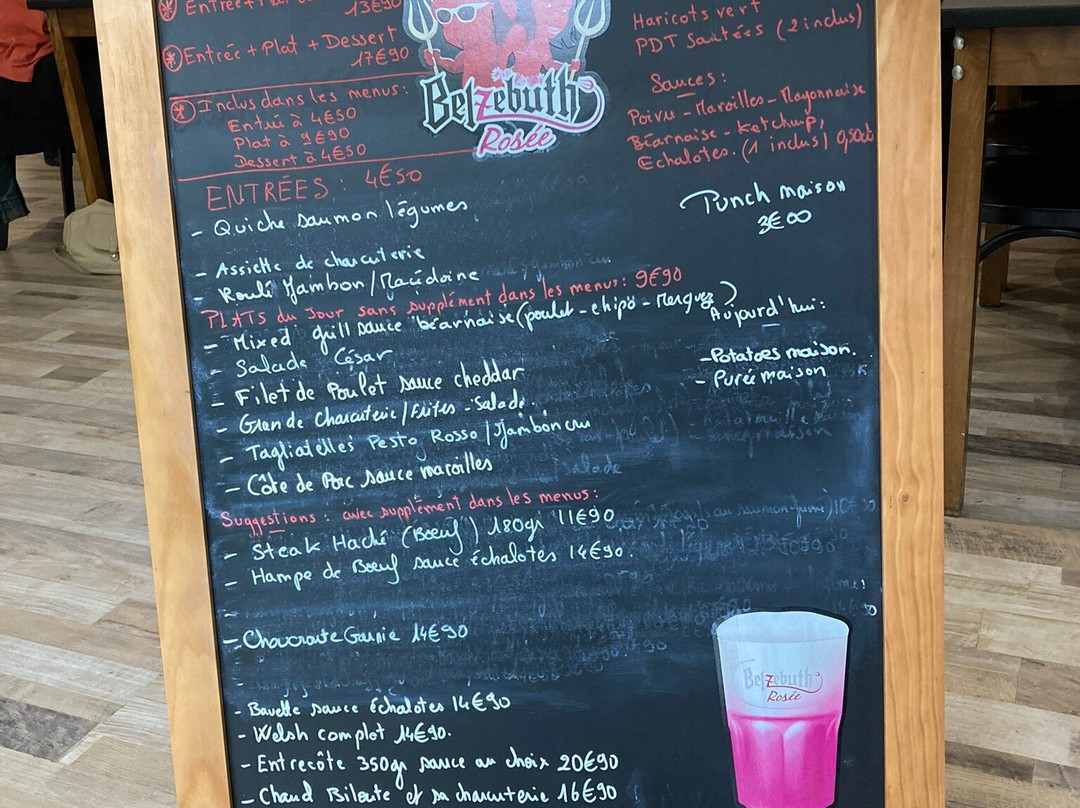 Entrée + Plat 13€90
Entrée + Plat + Dessert
17€90
Inclus dans les menus:
Entrée à 4€50
Plat à 9€90
Dessert à 4€50
Belzebuth
Rosée
Haricots vert
PDT Sautées (2 inclus)
Sauces:
Poivre - Maroilles - Mayonnaise
Béarnaise - Ketchup,
Echalotes. (1 inclus) 0,50ct
ENTRÉES: 4€50
- Quiche saumon légumes
- Assiette de charcuterie
- Roulé Jambon/Macédoine
Punch maison
3€00
PLATS du Jour sans supplément dans les menus: 9€90
- Mixed grill sauce béarnaise (poulet - chipo - Merguez)
- Salade César
- Filet de Poulet sauce cheddar
- Grande Charcuterie/Frites - Salade.
- Tagliatelles Pesto Rosso/Jambon cru
- Côte de Porc sauce maroilles
Aujourd'hui:
- Potatoes maison.
- Purée maison
Suggestions: avec supplément dans les menus:
- Steak Haché (Boeuf) 180gr 11€90
- Hampe de Boeuf sauce échalotes 14€90.
- Choucroute Garnie 14€90
- Bavette sauce échalotes 14€90
- Welsh complet 14€90.
- Entrecôte 350gr sauce au choix 20€90
- Chaud Biloute et sa charcuterie 16€90
Belzebuth
Rosée